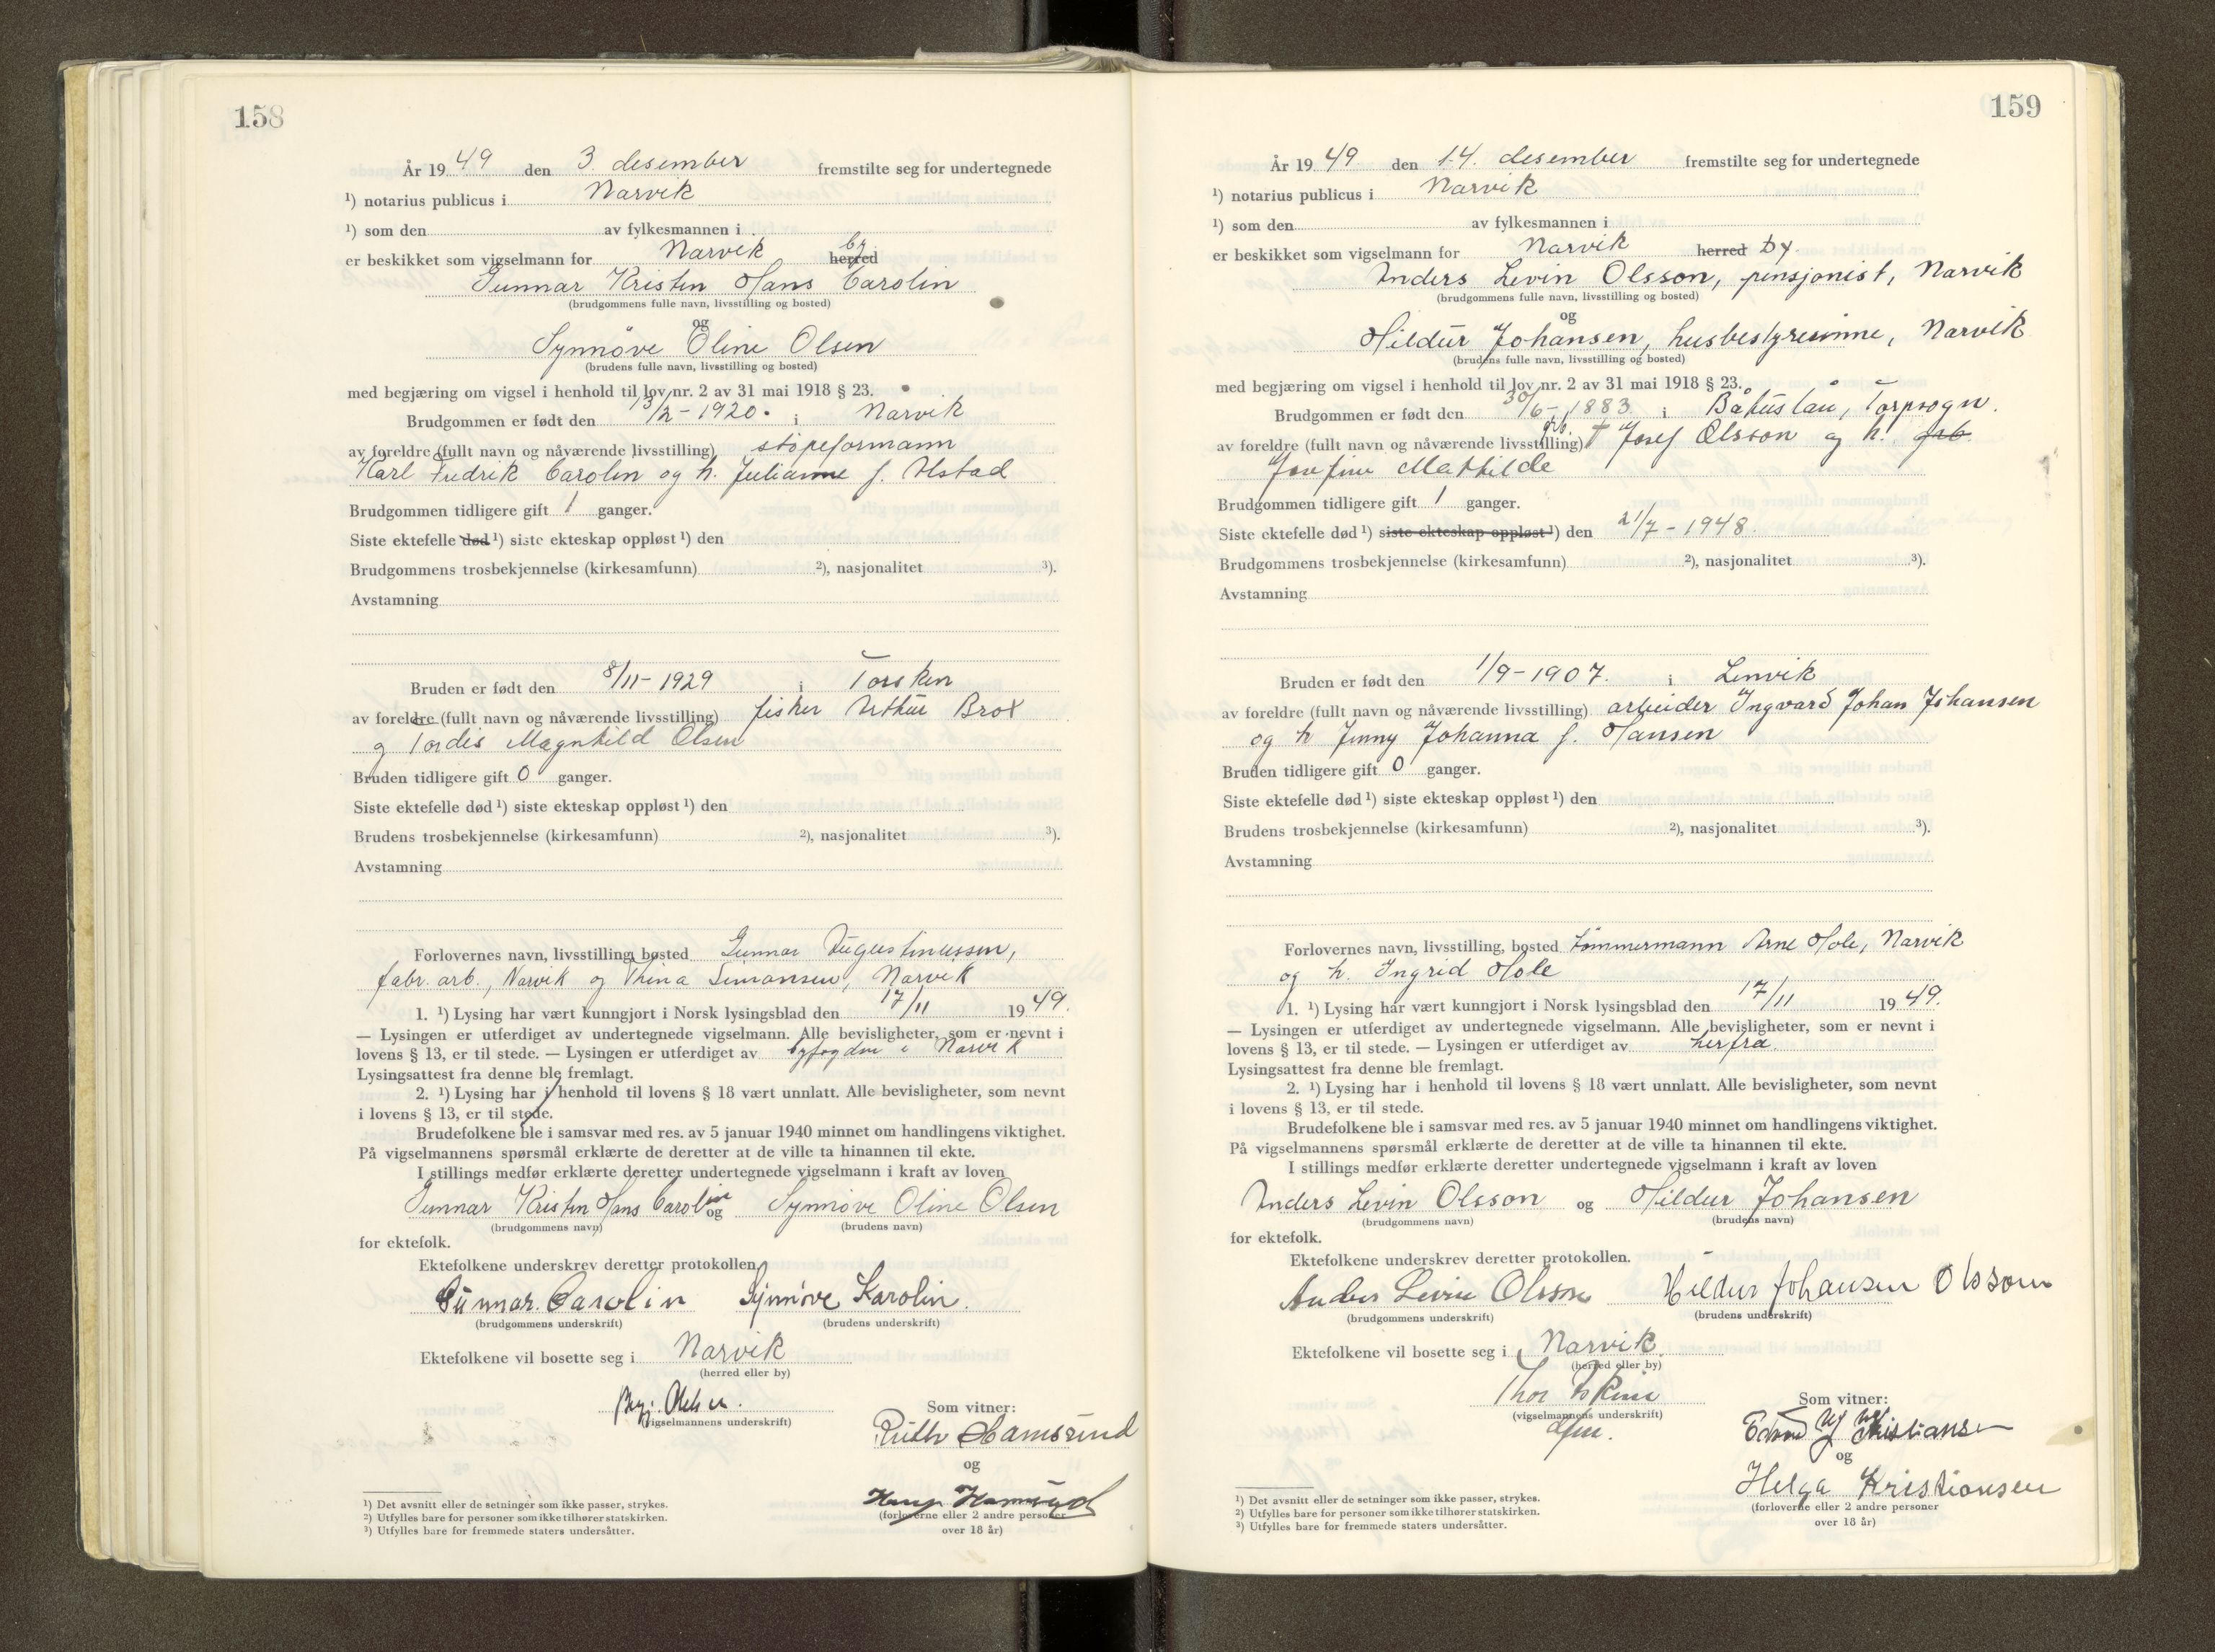 158
År 1949 den 3 desember fremstilte seg for undertegnede
¹) notarius publicus i Narvik
¹) som den av fylkesmannen i
er beskikket som vigselmann for Narvik herred by
Gunnar Kristen Hans Carolin
(brudgommens fulle navn, livsstilling og bosted)
og
Synnøve Oline Olsen
(brudens fulle navn, livsstilling og bosted)
med begjæring om vigsel i henhold til lov nr. 2 av 31 mai 1918 § 23.
Brudgommen er født den 13/2 - 1920. i Narvik
av foreldre (fullt navn og nåværende livsstilling) støpeformann
Karl Fredrik Carolin og h. Julianne f. Alstad
Brudgommen tidligere gift 1 ganger.
Siste ektefelle død ¹) siste ekteskap oppløst ¹) den
Brudgommens trosbekjennelse (kirkesamfunn) ²), nasjonalitet ³).
Avstamning
Bruden er født den 8/11 - 1929 i Torsken
av foreldre (fullt navn og nåværende livsstilling) fisker Arthur Brox
og Tordis Magnhild Olsen
Bruden tidligere gift 0 ganger.
Siste ektefelle død ¹) siste ekteskap oppløst ¹) den
Brudens trosbekjennelse (kirkesamfunn) ²), nasjonalitet ³).
Avstamning
Forlovernes navn, livsstilling, bosted Gunnar Augustinussen,
fabr. arb., Narvik og Thina Simonsen, Narvik
1. ¹) Lysing har vært kunngjort i Norsk lysingsblad den 17/11 1949.
— Lysingen er utferdiget av undertegnede vigselmann. Alle bevisligheter, som er nevnt i
lovens § 13, er til stede. — Lysingen er utferdiget av byfogden i Narvik
Lysingsattest fra denne ble fremlagt.
2. ¹) Lysing har i henhold til lovens § 18 vært unnlatt. Alle bevisligheter, som nevnt
i lovens § 13, er til stede.
Brudefolkene ble i samsvar med res. av 5 januar 1940 minnet om handlingens viktighet.
På vigselmannens spørsmål erklærte de deretter at de ville ta hinannen til ekte.
I stillings medfør erklærte deretter undertegnede vigselmann i kraft av loven
Gunnar Kristen Hans Carolin og Synnøve Oline Olsen
(brudgommens navn) (brudens navn)
for ektefolk.
Ektefolkene underskrev deretter protokollen
Gunnar Carolin Synnøve Karolin.
(brudgommens underskrift) (brudens underskrift)
Ektefolkene vil bosette seg i Narvik
(herred eller by)
(vigselmannens underskrift)
Som vitner:
Ruth Hamsund
og
(forloverne eller 2 andre personer
over 18 år)
¹) Det avsnitt eller de setninger som ikke passer, strykes.
²) Utfylles bare for personer som ikke tilhører statskirken.
³) Utfylles bare for fremmede staters undersåtter.
159
År 1949 den 14. desember fremstilte seg for undertegnede
¹) notarius publicus i Narvik
¹) som den av fylkesmannen i
er beskikket som vigselmann for Narvik herred by.
Anders Levin Olsson, pensjonist, Narvik
(brudgommens fulle navn, livsstilling og bosted)
og
Hildur Johansen, husbestyrerinne, Narvik
(brudens fulle navn, livsstilling og bosted)
med begjæring om vigsel i henhold til lov nr. 2 av 31 mai 1918 § 23.
Brudgommen er født den 30/6 - 1883 i Båhuslän, Torpsogn.
av foreldre (fullt navn og nåværende livsstilling) grb. † Josef Olsson og h. grb.
Josefine Mathilde
Brudgommen tidligere gift 1 ganger.
Siste ektefelle død ¹) siste ekteskap oppløst ¹) den 21/7 - 1948.
Brudgommens trosbekjennelse (kirkesamfunn) ²), nasjonalitet ³).
Avstamning
Bruden er født den 1/9 - 1907. i Lenvik
av foreldre (fullt navn og nåværende livsstilling) arbeider Ingvard Johan Johansen
og h Jenny Johanna f. Hansen
Bruden tidligere gift 0 ganger.
Siste ektefelle død ¹) siste ekteskap oppløst ¹) den
Brudens trosbekjennelse (kirkesamfunn) ²), nasjonalitet ³).
Avstamning
Forlovernes navn, livsstilling, bosted tømmermann Arne Hole, Narvik
og h. Ingrid Hole
1. ¹) Lysing har vært kunngjort i Norsk lysingsblad den 17/11 1949.
— Lysingen er utferdiget av undertegnede vigselmann. Alle bevisligheter, som er nevnt i
lovens § 13, er til stede. — Lysingen er utferdiget av herfra.
Lysingsattest fra denne ble fremlagt.
2. ¹) Lysing har i henhold til lovens § 18 vært unnlatt. Alle bevisligheter, som nevnt
i lovens § 13, er til stede.
Brudefolkene ble i samsvar med res. av 5 januar 1940 minnet om handlingens viktighet.
På vigselmannens spørsmål erklærte de deretter at de ville ta hinannen til ekte.
I stillings medfør erklærte deretter undertegnede vigselmann i kraft av loven
Anders Levin Olsson og Hildur Johansen
(brudgommens navn) (brudens navn)
for ektefolk.
Ektefolkene underskrev deretter protokollen.
Anders Levin Olsson Hildur Johansen Olsson
(brudgommens underskrift) (brudens underskrift)
Ektefolkene vil bosette seg i Narvik
(herred eller by)
Thor
(vigselmannens underskrift)
Som vitner:
Kristiansen
og
Helga Kristiansen
(forloverne eller 2 andre personer
over 18 år)
¹) Det avsnitt eller de setninger som ikke passer, strykes.
²) Utfylles bare for personer som ikke tilhører statskirken.
³) Utfylles bare for fremmede staters undersåtter.